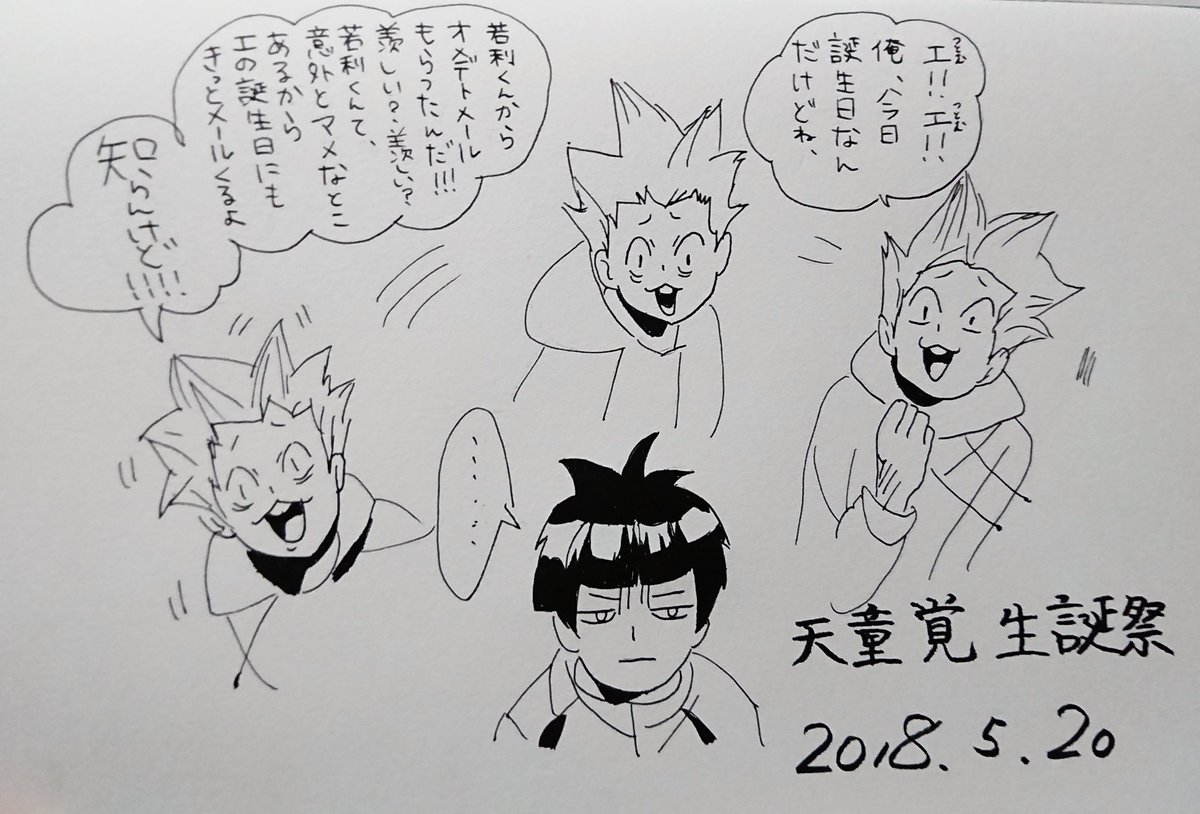 工!!工!!
つとむ
つとむ
俺、今日
誕生日なん
だけどね、
若利くんから
オメデトメール
もらったんだ!!!
羨しい?羨しい?
若利くんて、
意外とマメなとこ
あるから
工の誕生日にも
きっとメールくるよ
知らんけど!!!!
………
天童覚 生誕祭
2018.5.20